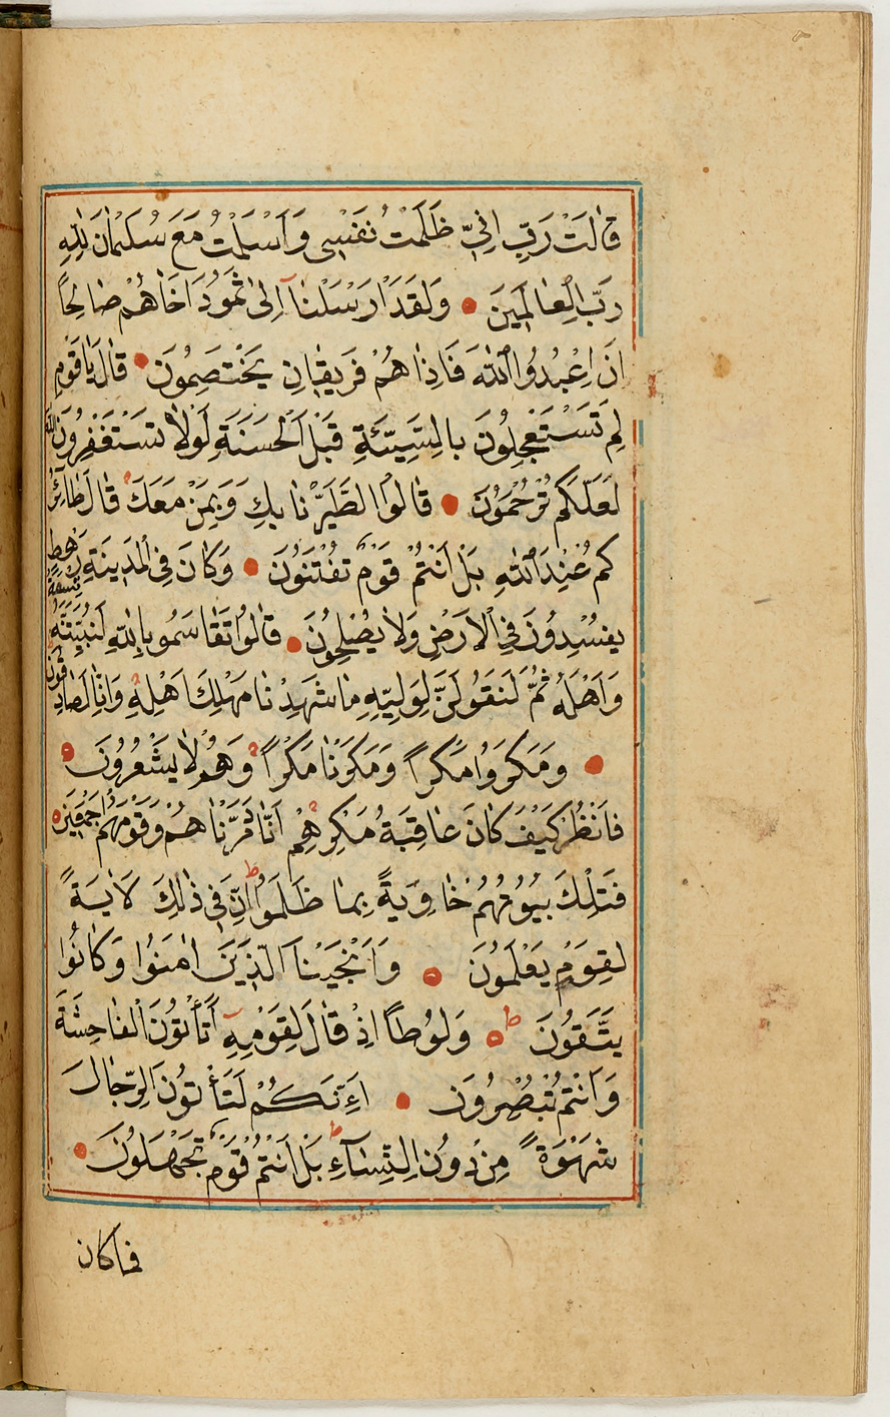 قَالَتْ رَبِّ اِنِّي ظَلَمْتُ نَفْسِي وَاَسْلَمْتُ مَعَ سُلَيْمٰانَ لِلّٰهِ
رَبِّ الْعٰالَمِينَ ● وَلَقَدْ اَرْسَلْنٰآ اِلىٰ ثَمُودَ اَخٰاهُمْ صٰالِحًا
اَنِ اعْبُدُوا اللّٰهَ فَاِذٰا هُمْ فَرِيقٰانِ يَخْتَصِمُونَ ● قٰالَ يٰا قَوْمِ
لِمَ تَسْتَعْجِلُونَ بِالسَّيِّئَةِ قَبْلَ الْحَسَنَةِ لَوْلٰا تَسْتَغْفِرُونَ اللّٰهَ
لَعَلَّكُمْ تُرْحَمُونَ ● قٰالُوا اطَّيَّرْنٰا بِكَ وَبِمَنْ مَعَكَ قٰالَ طٰائِرُ
كُمْ عِنْدَ اللّٰهِ بَلْ اَنْتُمْ قَوْمٌ تُفْتَنُونَ ● وَكٰانَ فِي الْمَدِينَةِ تِسْعَةُ رَهْطٍ
يُفْسِدُونَ فِي الْاَرْضِ وَلٰا يُصْلِحُونَ ● قٰالُوا تَقٰاسَمُوا بِاللّٰهِ لَنُبَيِّتَنَّهُ
وَاَهْلَهُ ثُمَّ لَنَقُولَنَّ لِوَلِيِّهِ مٰا شَهِدْنٰا مَهْلِكَ اَهْلِهِ وَاِنّٰا لَصٰادِقُونَ
● وَمَكَرُوا مَكْرًا وَمَكَرْنٰا مَكْرًا وَهُمْ لٰا يَشْعُرُونَ
فَانْظُرْ كَيْفَ كٰانَ عٰاقِبَةُ مَكْرِهِمْ اَنّٰا دَمَّرْنٰاهُمْ وَقَوْمَهُمْ اَجْمَعِينَ
فَتِلْكَ بُيُوتُهُمْ خٰاوِيَةً بِمٰا ظَلَمُوا اِنَّ فِي ذٰلِكَ لَاٰيَةً
لِقَوْمٍ يَعْلَمُونَ ● وَاَنْجَيْنَا الَّذِينَ اٰمَنُوا وَكٰانُوا
يَتَّقُونَ وَلُوطًا اِذْ قٰالَ لِقَوْمِهِ اَتَأْتُونَ الْفٰاحِشَةَ
وَاَنْتُمْ تُبْصِرُونَ ● اَءِنَّكُمْ لَتَأْتُونَ الرِّجٰالَ
شَهْوَةً مِنْ دُونِ النِّسٰآءِ بَلْ اَنْتُمْ قَوْمٌ تَجْهَلُونَ ●
فما كان